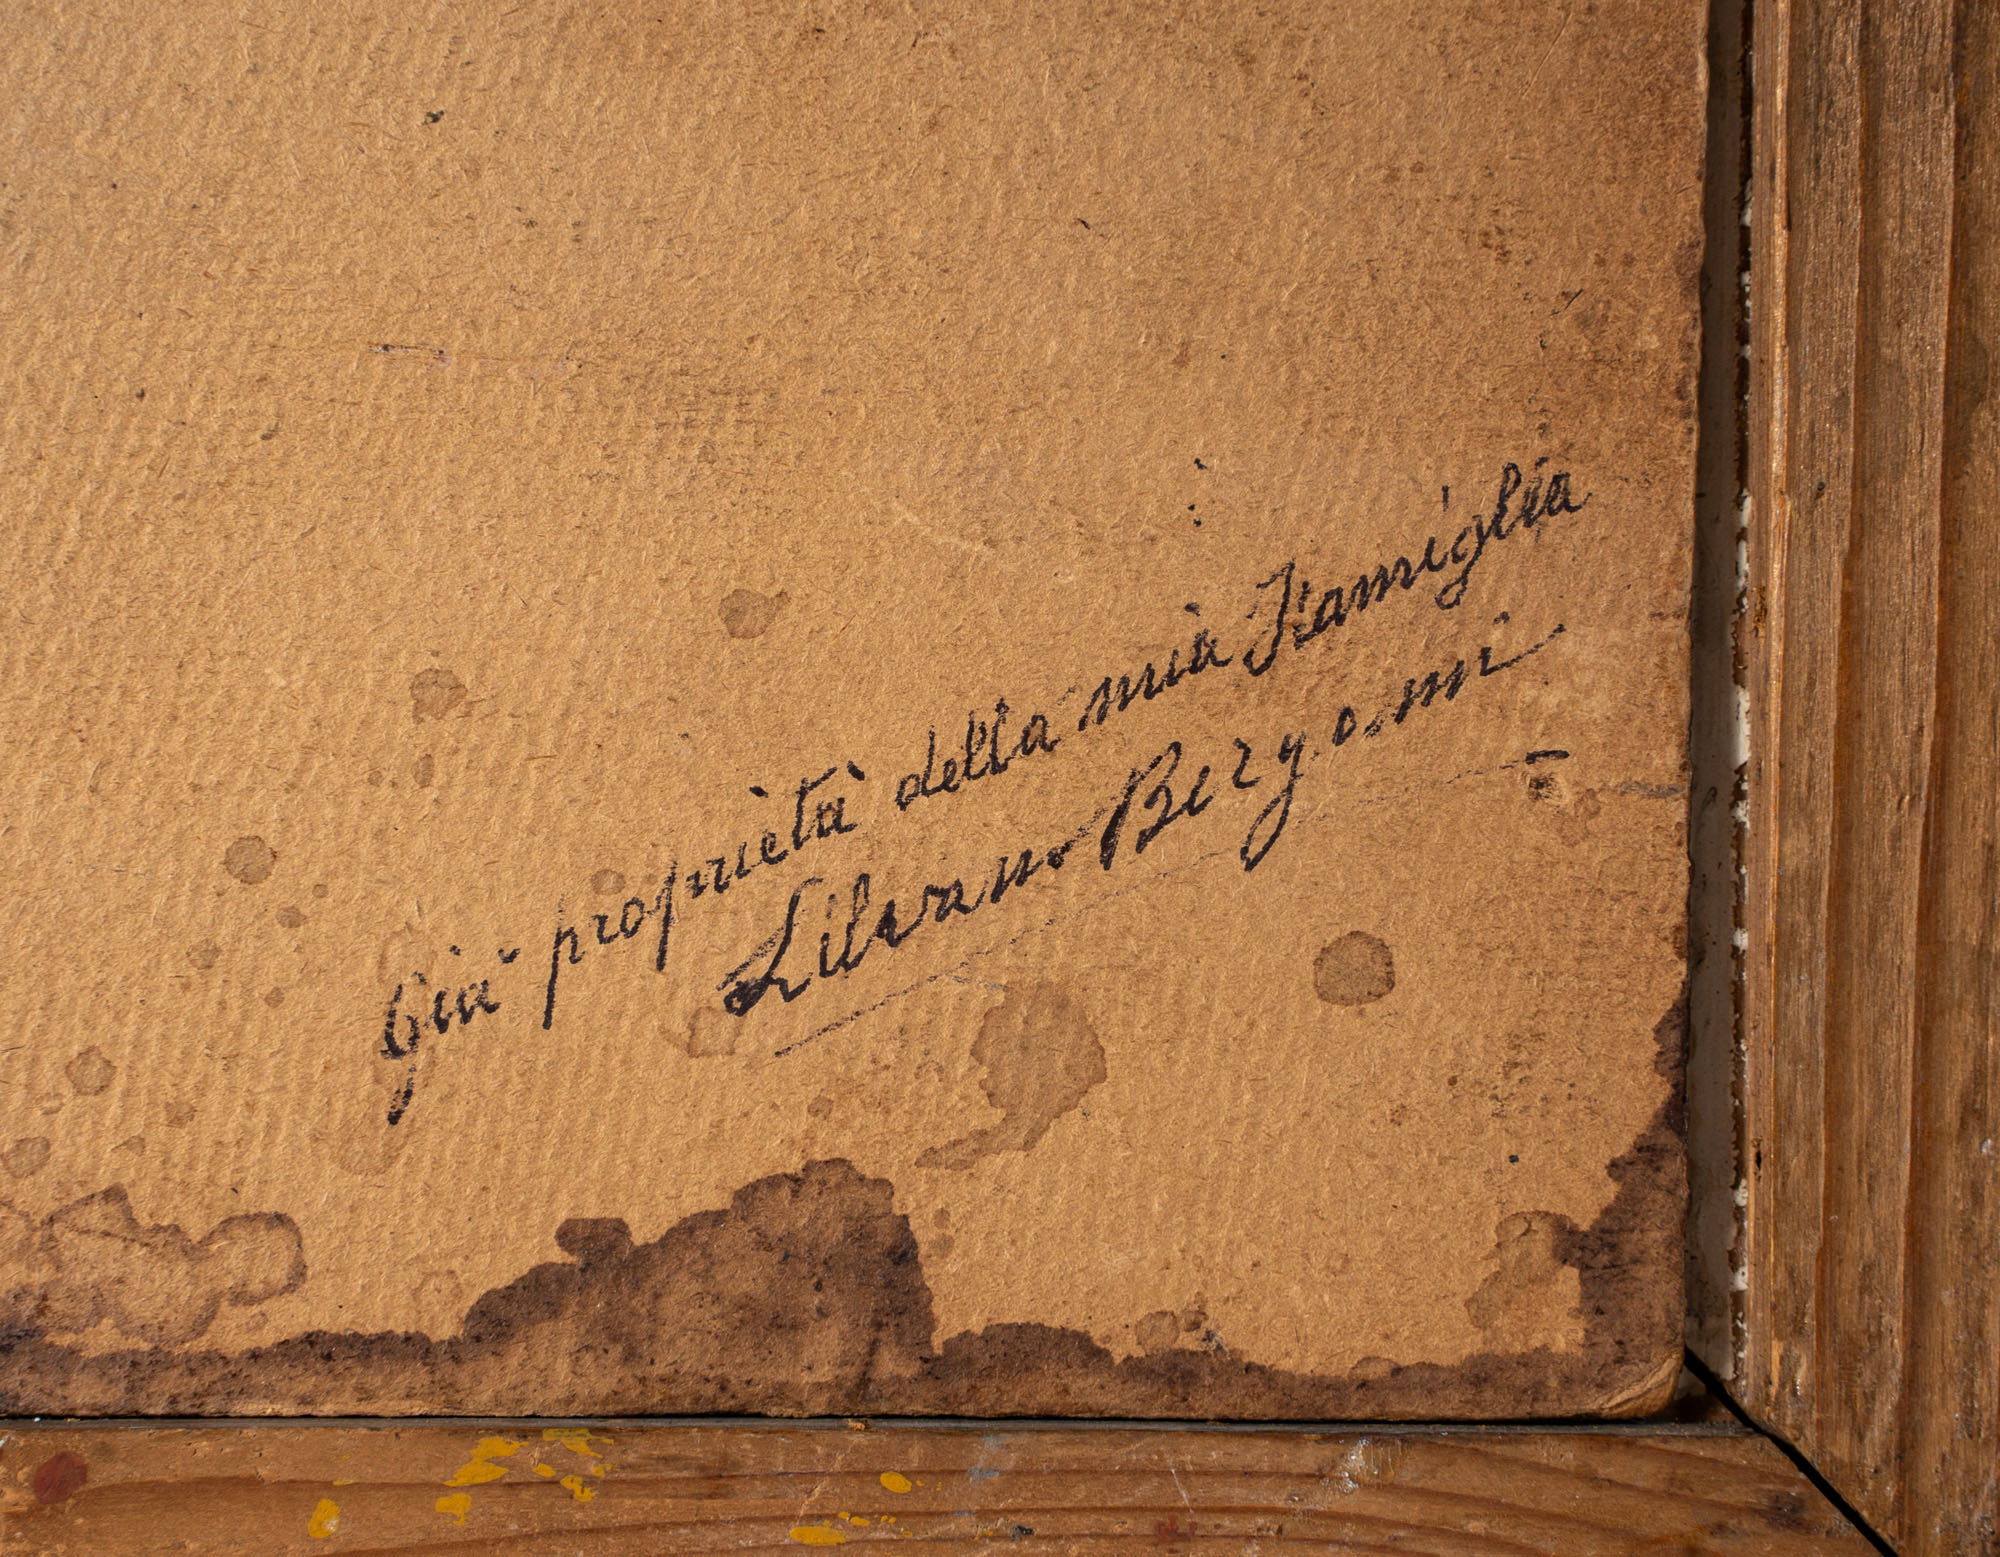 Già proprietà della mia Famiglia
Silvano Bergonni